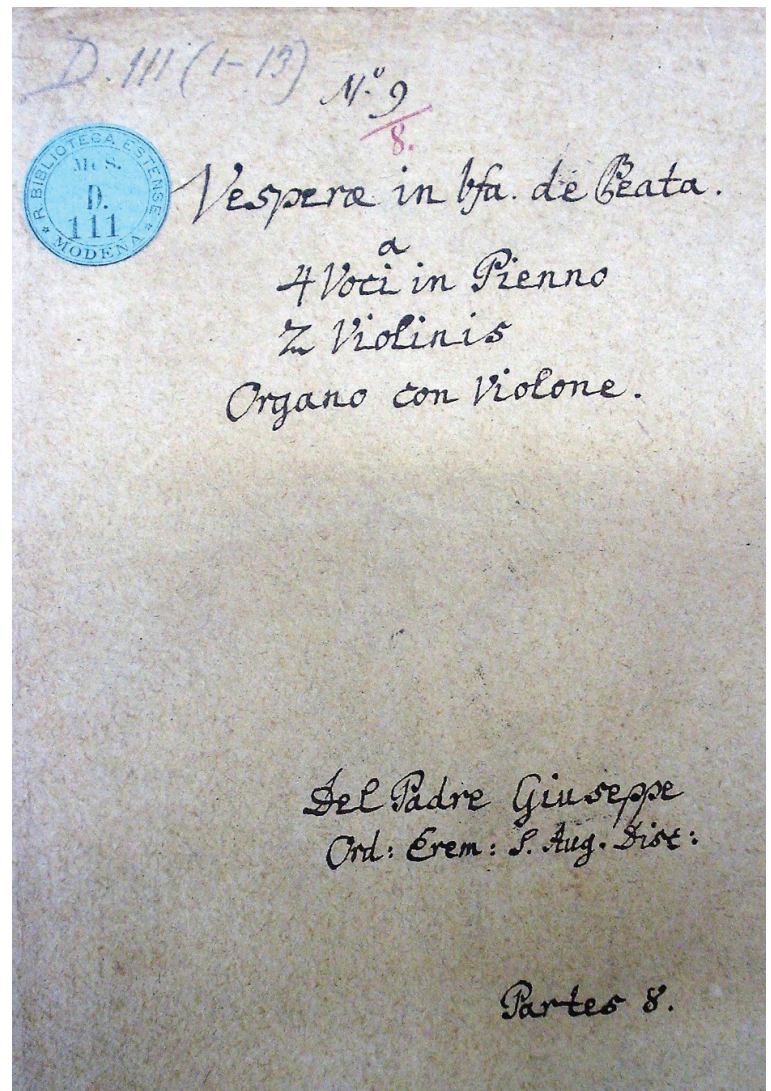 D. 111 (1-13)
N.º 9
8.
R. BIBLIOTECA ESTENSE
MUS.
D.
111
* MODENA *
Vesperæ in bfa. de Beata.
a
4 Voci in Pienno
2 Violinis
Organo con Violone.
Del Padre Giuseppe
Ord: Erem: S. Aug. Disc:
Partes 8.